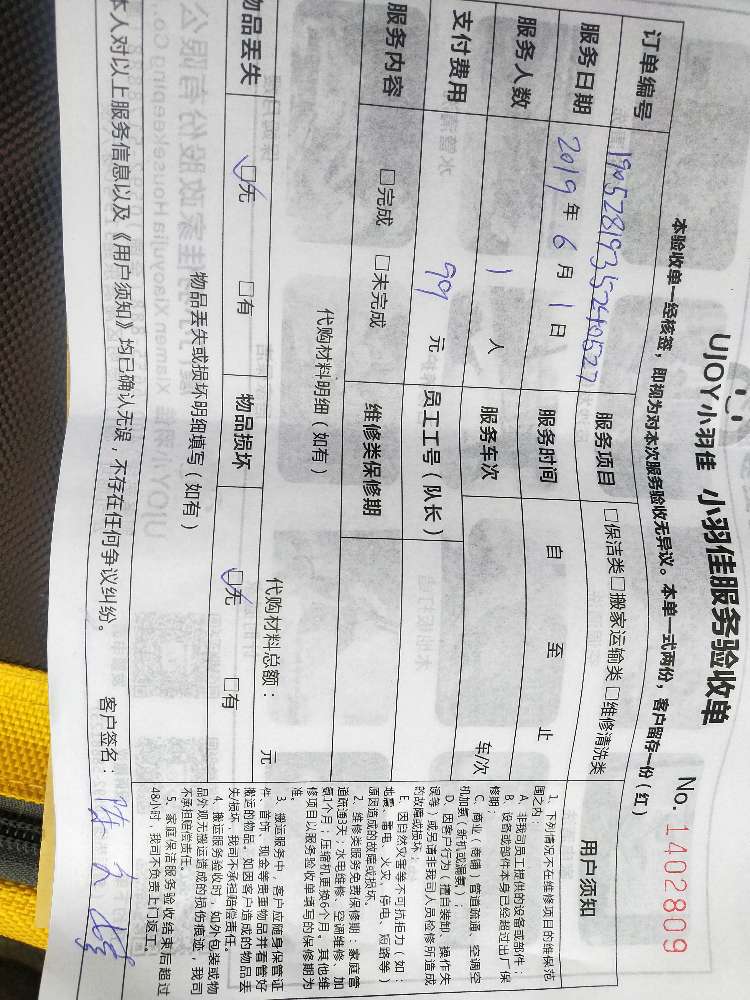 UJOY小羽佳 小羽佳服务验收单
No. 1402809
本验收单一经核签，即视为对本次服务验收无异议。本单一式两份，客户留存一份（红）
订单编号 190528193524052 7 服务项目 □保洁类□搬家运输类□维修清洗类
服务日期 2019 年 6 月 1 日 服务时间 自 至 止
服务人数 1 人 服务车次 车/次
支付费用 99 元 员工工号（队长）
服务内容 □完成 □未完成 维修类保修期
代购材料明细（如有）
代购材料总额： 元
物品丢失 ☑无 □有 物品损坏 ☑无 □有
物品丢失或损坏明细填写（如有）
本人对以上服务信息以及《用户须知》均已确认无误，不存在任何争议纠纷。 客户签名：
用户须知
1、下列情况不在维修项目的维保范
围之内：
A、非我司员工提供的设备或部件；
B、设备或部件本身已经超过出厂保
修期；
C、商业（商铺）管道疏通、空调空
机加氨（新机或漏氨）；
D、因客户行为（擅自装卸、操作失
误等）或另请非我司人员检修所造成
的故障或损坏；
E、因自然灾害等不可抗拒力（如：
地震、雷电、火灾、停电、短路等）
原因造成的故障或损坏。
2、维修类服务免费保修期：家庭管
道疏通3天；水电维修、空调维修、加
氨1个月；压缩机更换6个月。其他维
修项目以服务验收单填写的保修期为
准。
3、搬运服务中，客户应随身保管证
件、首饰、现金等贵重物品并看管好
搬运的物品。如因客户造成的物品丢
失/损坏，我司不承担赔偿责任。
4、搬运服务验收时，如外包装或物
品外观无搬运造成的损伤痕迹，我司
不承担赔偿责任。
5、家庭保洁服务验收结束后超过
48小时，我司不负责上门返工。